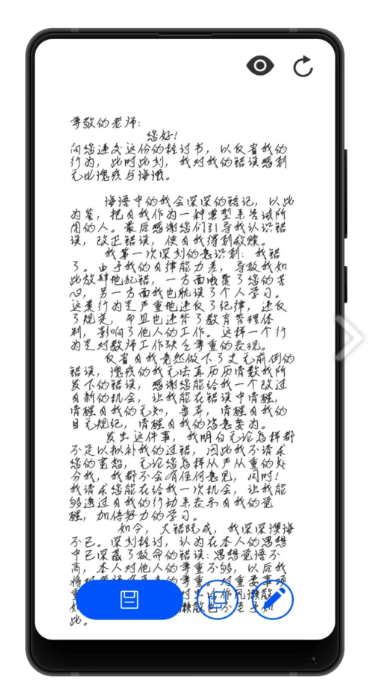 尊敬的老师:
您好!
向您递交这份的检讨书,以反省我的
行为,此时此刻,我对我的错误感到
无比愧疚与海涵。
海语中的我会深深的铭记,以此
为鉴,把自我作为一种典型来告诫所
周的人。最后感谢您们引导我认识错
误,改正错误,使自我得到救赎。
我第一次深刻的意识到:我错
了。由于我的自律能力差,导致我如
此放肆地犯错,一方面浪费了您的苦
心,另一方面我也耽误了个人学习。
这类行为是严重地违反了纪律,违反
了规定,而且也违背了教育管理体
制,影响了他人的工作。这样一个行
为是对教师工作缺乏尊重的表现。
反省自我竟然做下了史无前例的
错误,愧疚的我无法再历历清数我所
发下的错误,感谢您能给我一个改过
自新的机会,让我能在错误中清醒,
清醒自我的无知,愚昧,清醒自我的
目无规纪,清醒自我的恣意妄为。
发生这件事,我明白无论怎样都
不足以拟补我的过错,因此我不请求
您的宽恕,无论您怎样从严从重的处
分我,我都不会有任何意见,同时!
我请求您能在给我一次机会,让我能
够透过自我的行动来表示自我的觉
醒,加倍努力的学习。
如今,大错既成,我深深懊悔
不已。深刻检讨,认为在本人的思想
中已深藏了致命的错误:思想觉悟不
高,本人对他人的尊重不够,以后我
将对老师
此。